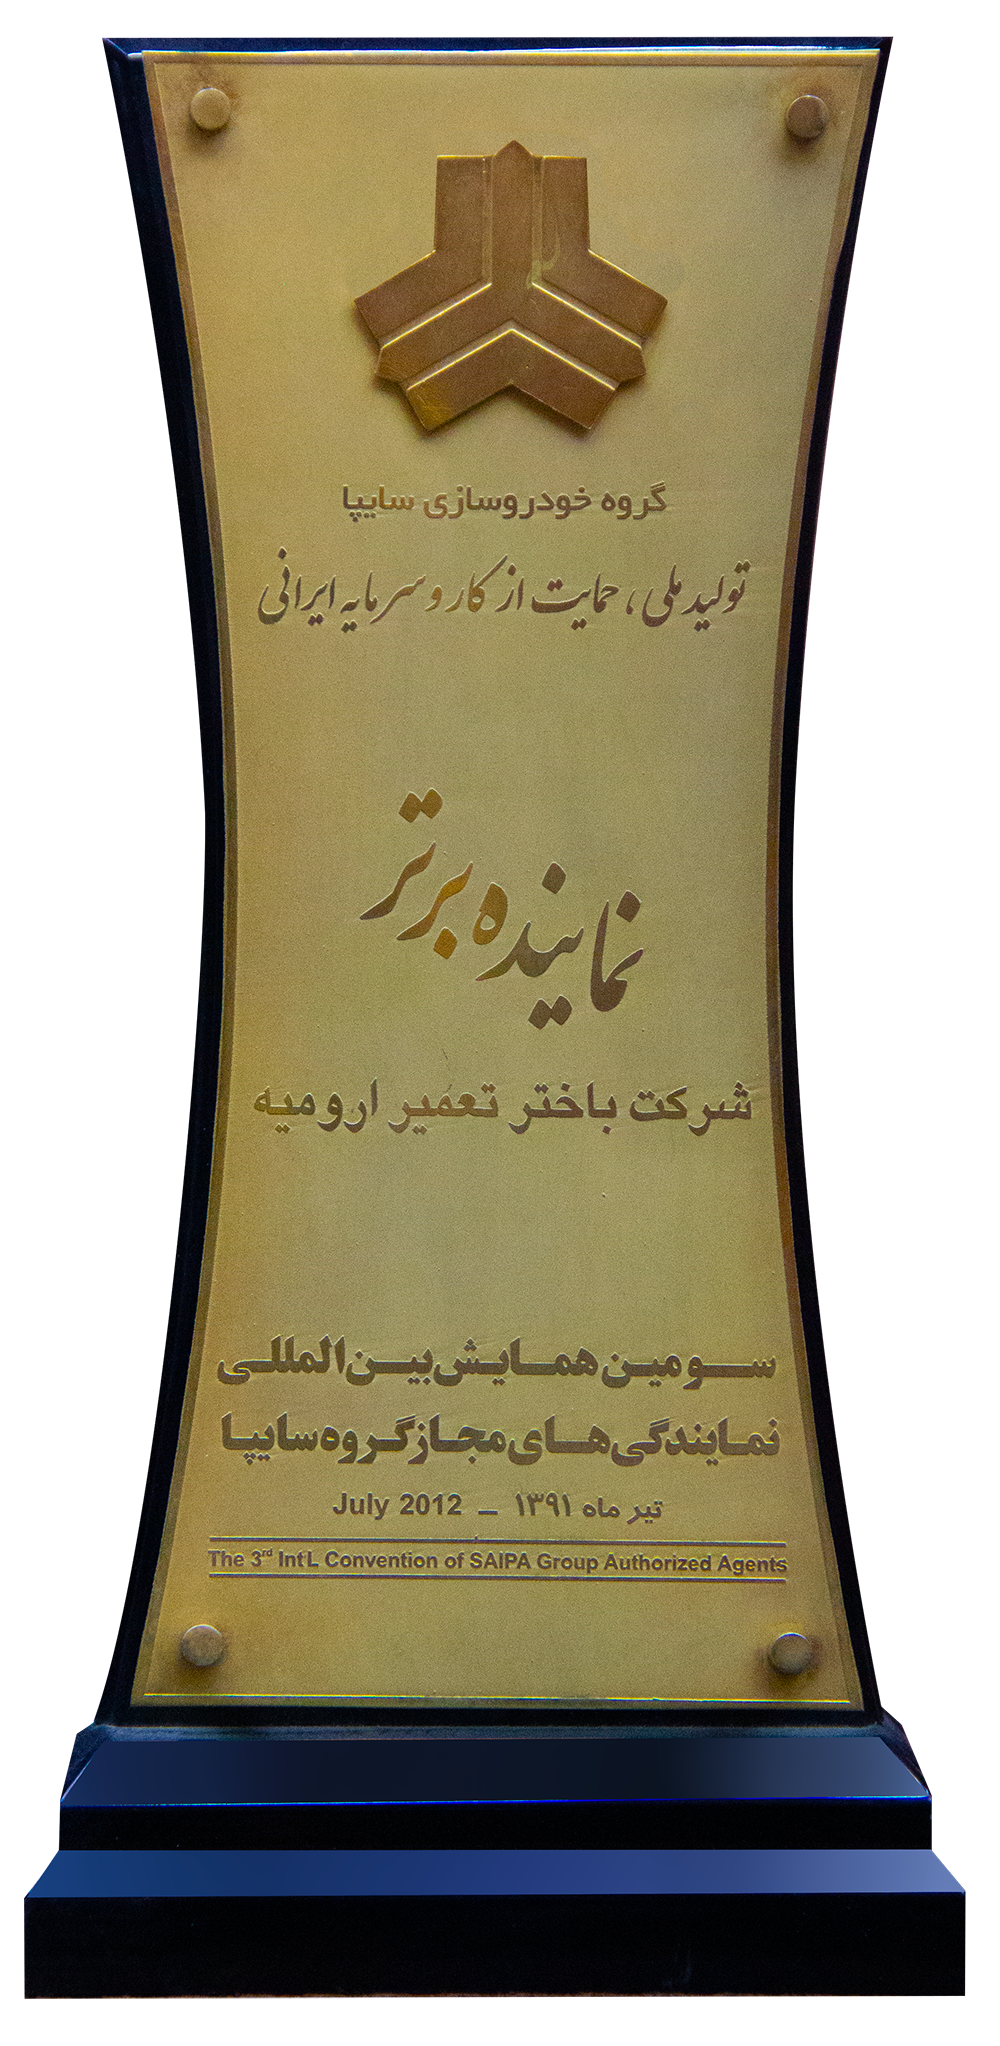 گروه خودروسازی سایپا
تولید ملی، حمایت از کار و سرمایه ایرانی
نماینده برتر
شرکت باختر تعمیر ارومیه
سومین همایش بین المللی
نمایندگی های مجاز گروه سایپا
تیر ماه ۱۳۹۱ – July 2012
The 3rd Int'L Convention of SAIPA Group Authorized Agents